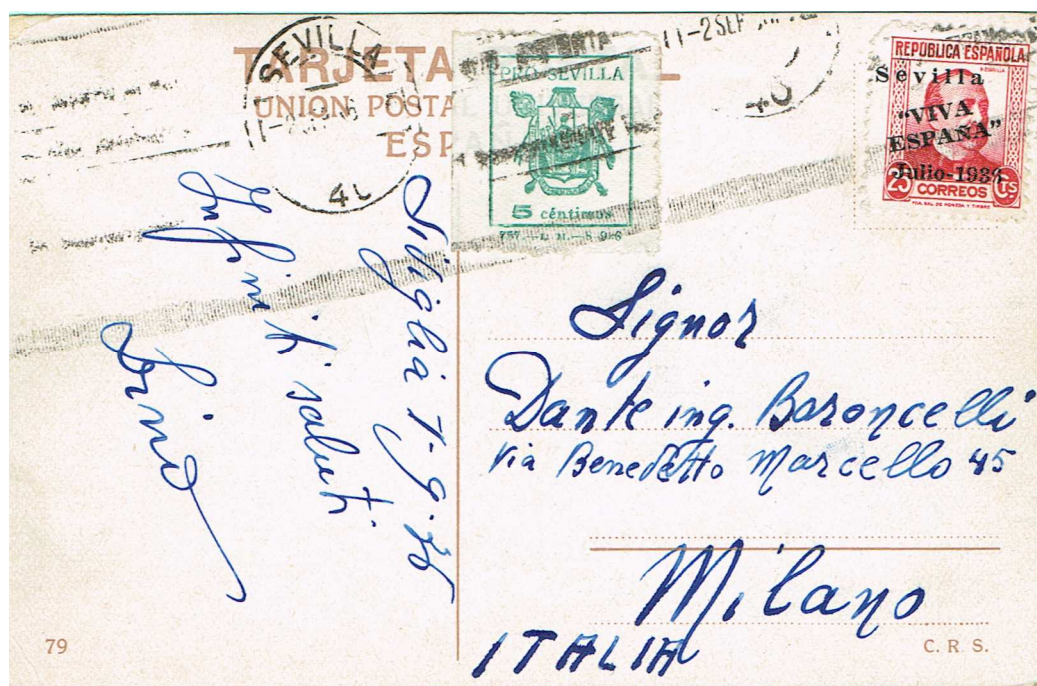 TARJETA
UNION POSTAL
ESPAÑA
SEVILLA
11-2 SEP
40
PRO-SEVILLA
5 céntimos
REPÚBLICA ESPAÑOLA
Sevilla
"VIVA
ESPAÑA"
Julio-1936
25 CORREOS CTS
Siviglia 1-9-36
Infiniti saluti
Signor
Dante ing. Baroncelli
Via Benedetto Marcello 45
Milano
ITALIA
79
C. R. S.